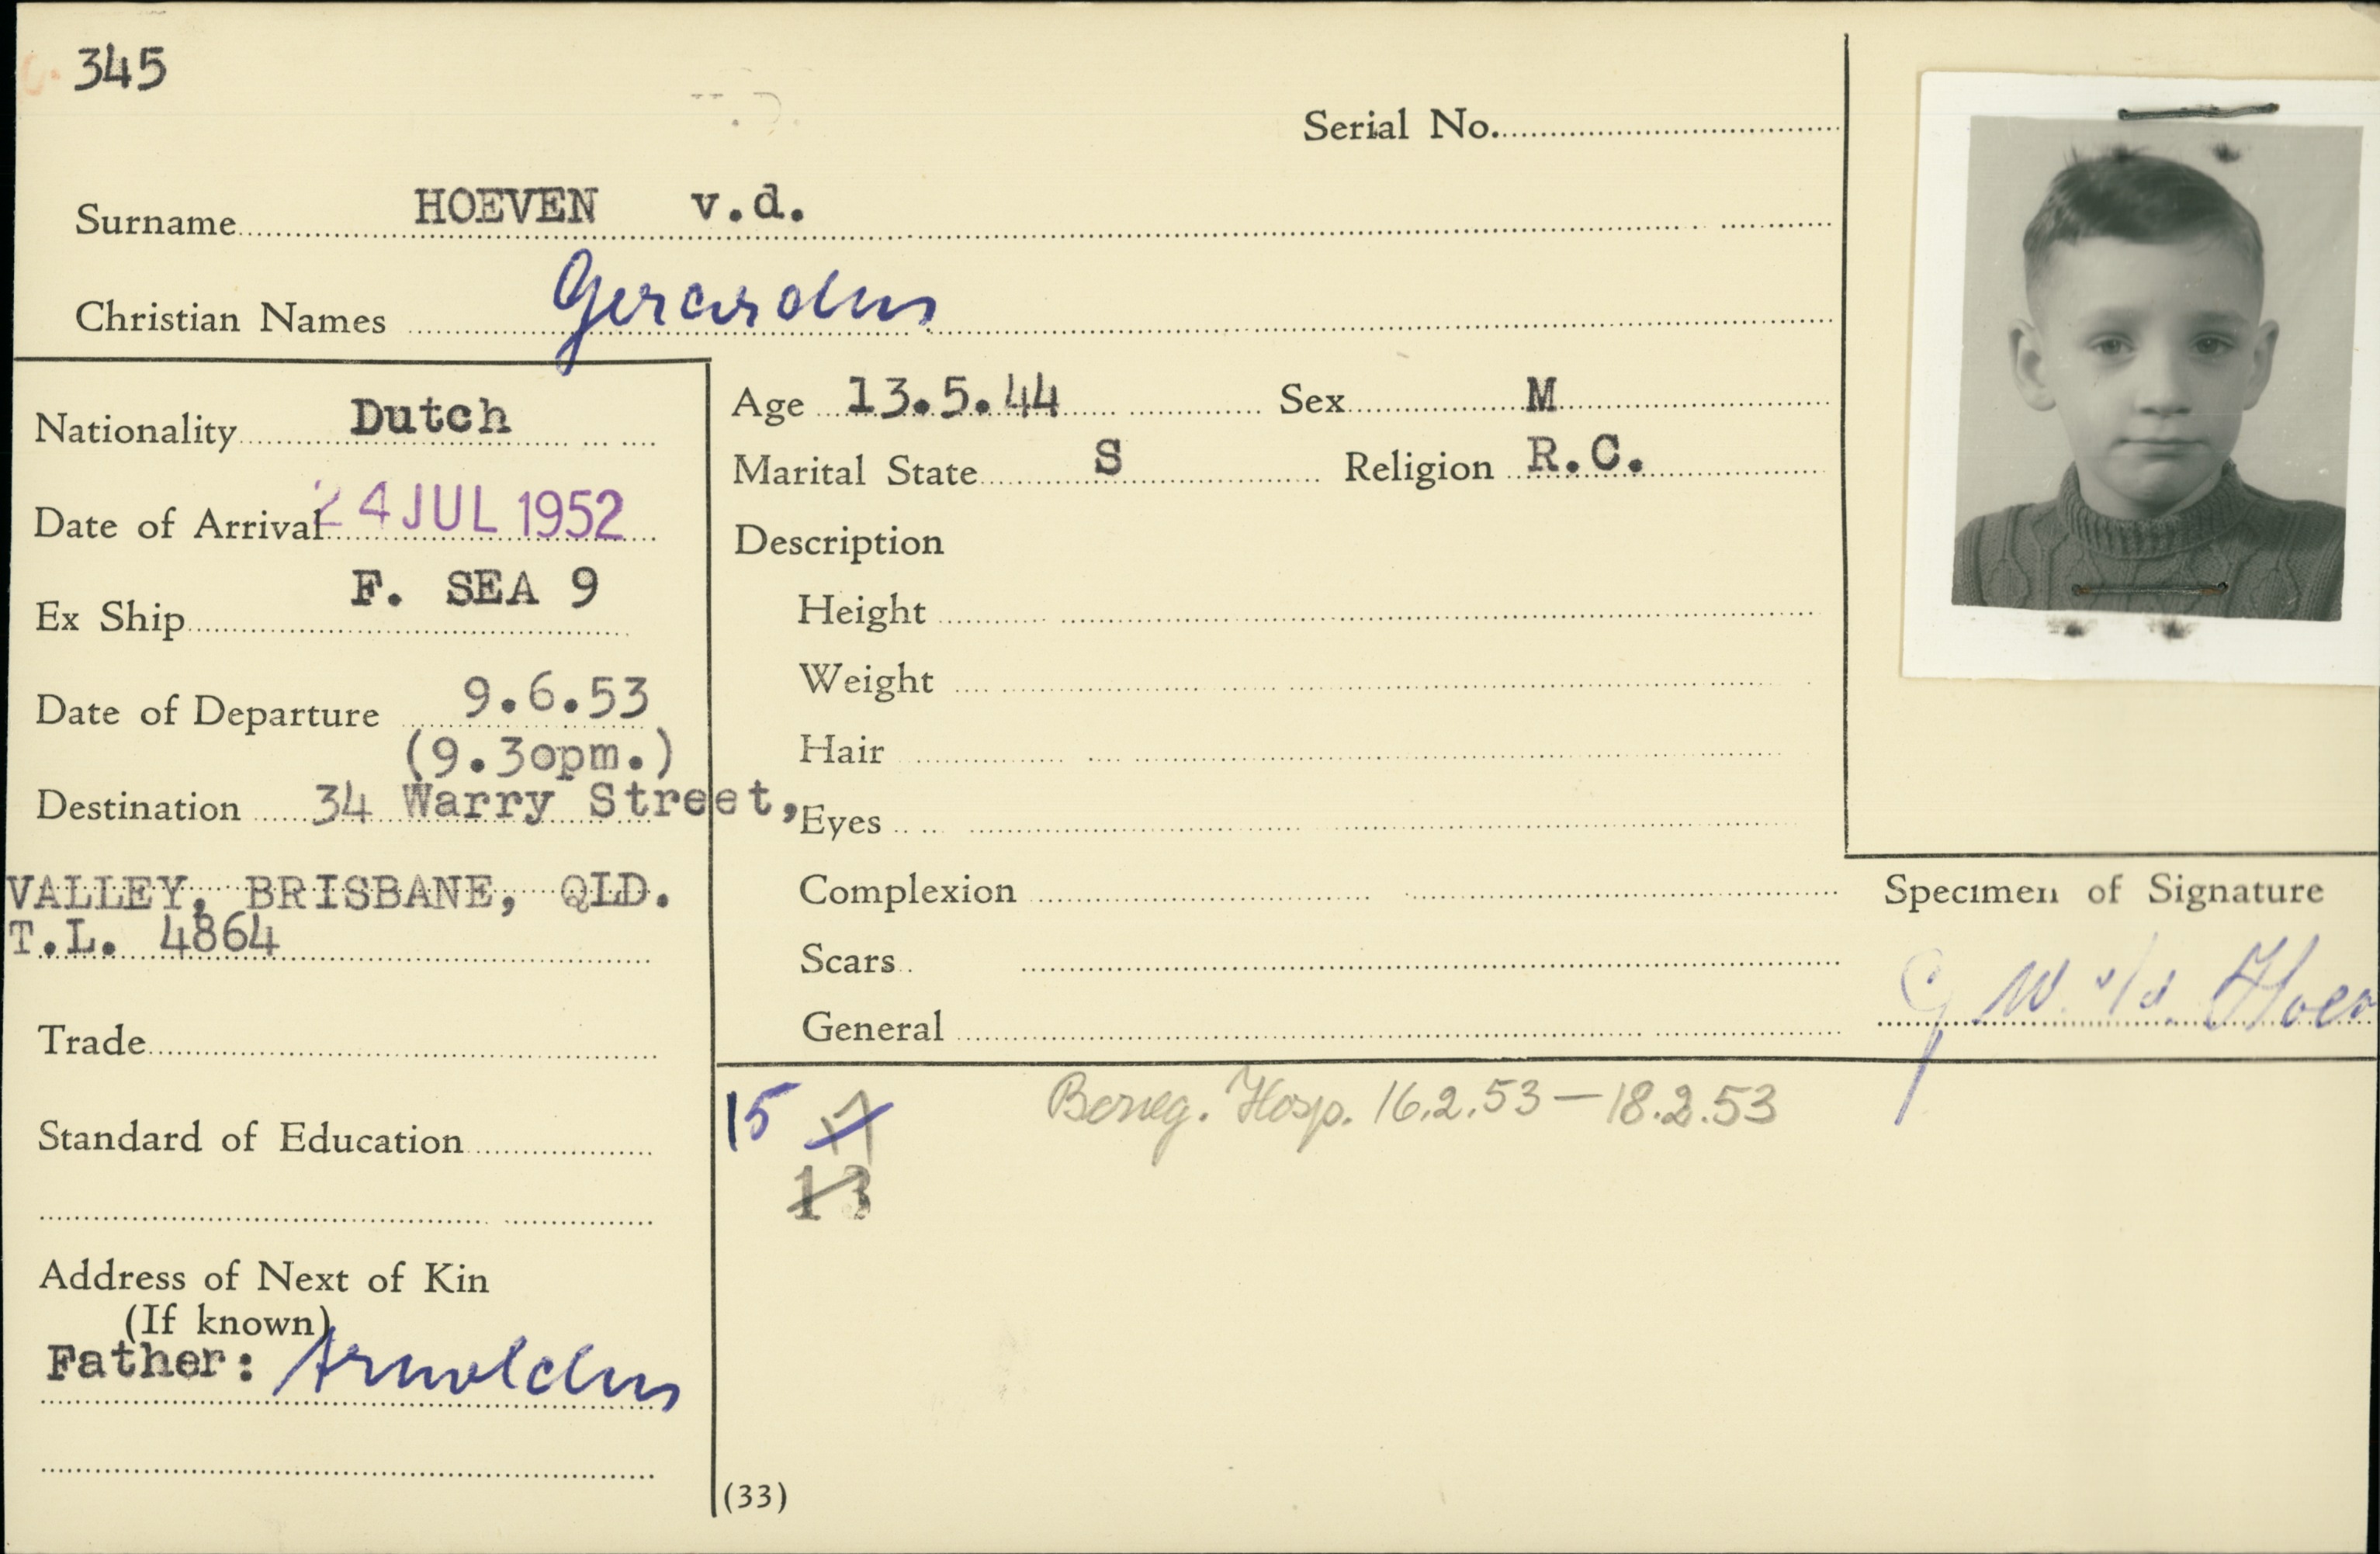 345
Serial No.
Surname HOEVEN v.d.
Christian Names Gerardus
Nationality Dutch
Date of Arrival 24 JUL 1952
Ex Ship F. SEA 9
Date of Departure 9.6.53
(9.30pm.)
Destination 34 Warry Street,
VALLEY, BRISBANE, QLD.
T.L. 4864
Trade
Standard of Education
Address of Next of Kin
(If known)
Father: Arnoldus
Age 13.5.44 Sex M
Marital State S Religion R.C.
Description
Height
Weight
Hair
Eyes
Complexion
Scars
General
15 17
13
Boneg. Hosp. 16.2.53 — 18.2.53
(33)
Specimen of Signature
G W v/d. Hoev